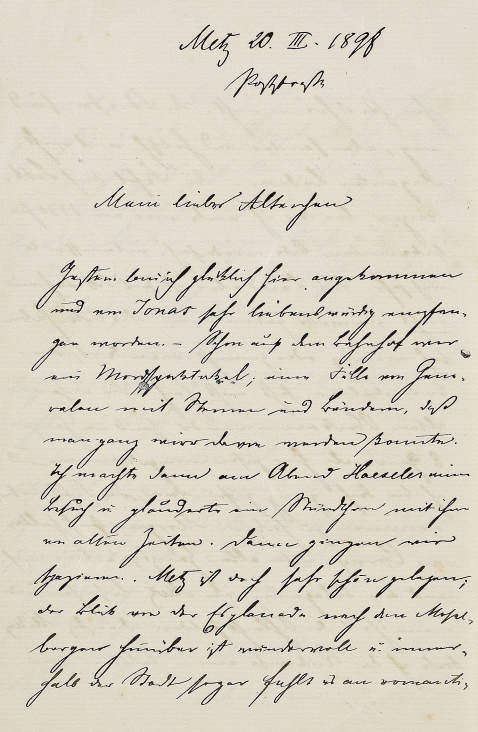 Metz 20. III. 1898
Poststraße
Mein liebes Altechen
Gestern bin ich glücklich hier angekommen
und von Jonas sehr liebenswürdig empfan-
gen worden. – Schon auf dem Bahnhof war
ein Mordsspektakel; eine Fülle von Gene-
ralen mit Sternen und Bändern, daß
man ganz wirr davon werden konnte.
Ich machte dann am Abend Haeseler einen
Besuch u plauderte ein Stündchen mit ihm
von alten Zeiten. Dann gingen wir
spazieren. Metz ist doch sehr schön gelegen;
der Blick von der Esplanade nach den Mosel-
bergen hinüber ist wundervoll u. inner-
halb der Stadt sogar fehlt es an romanti-